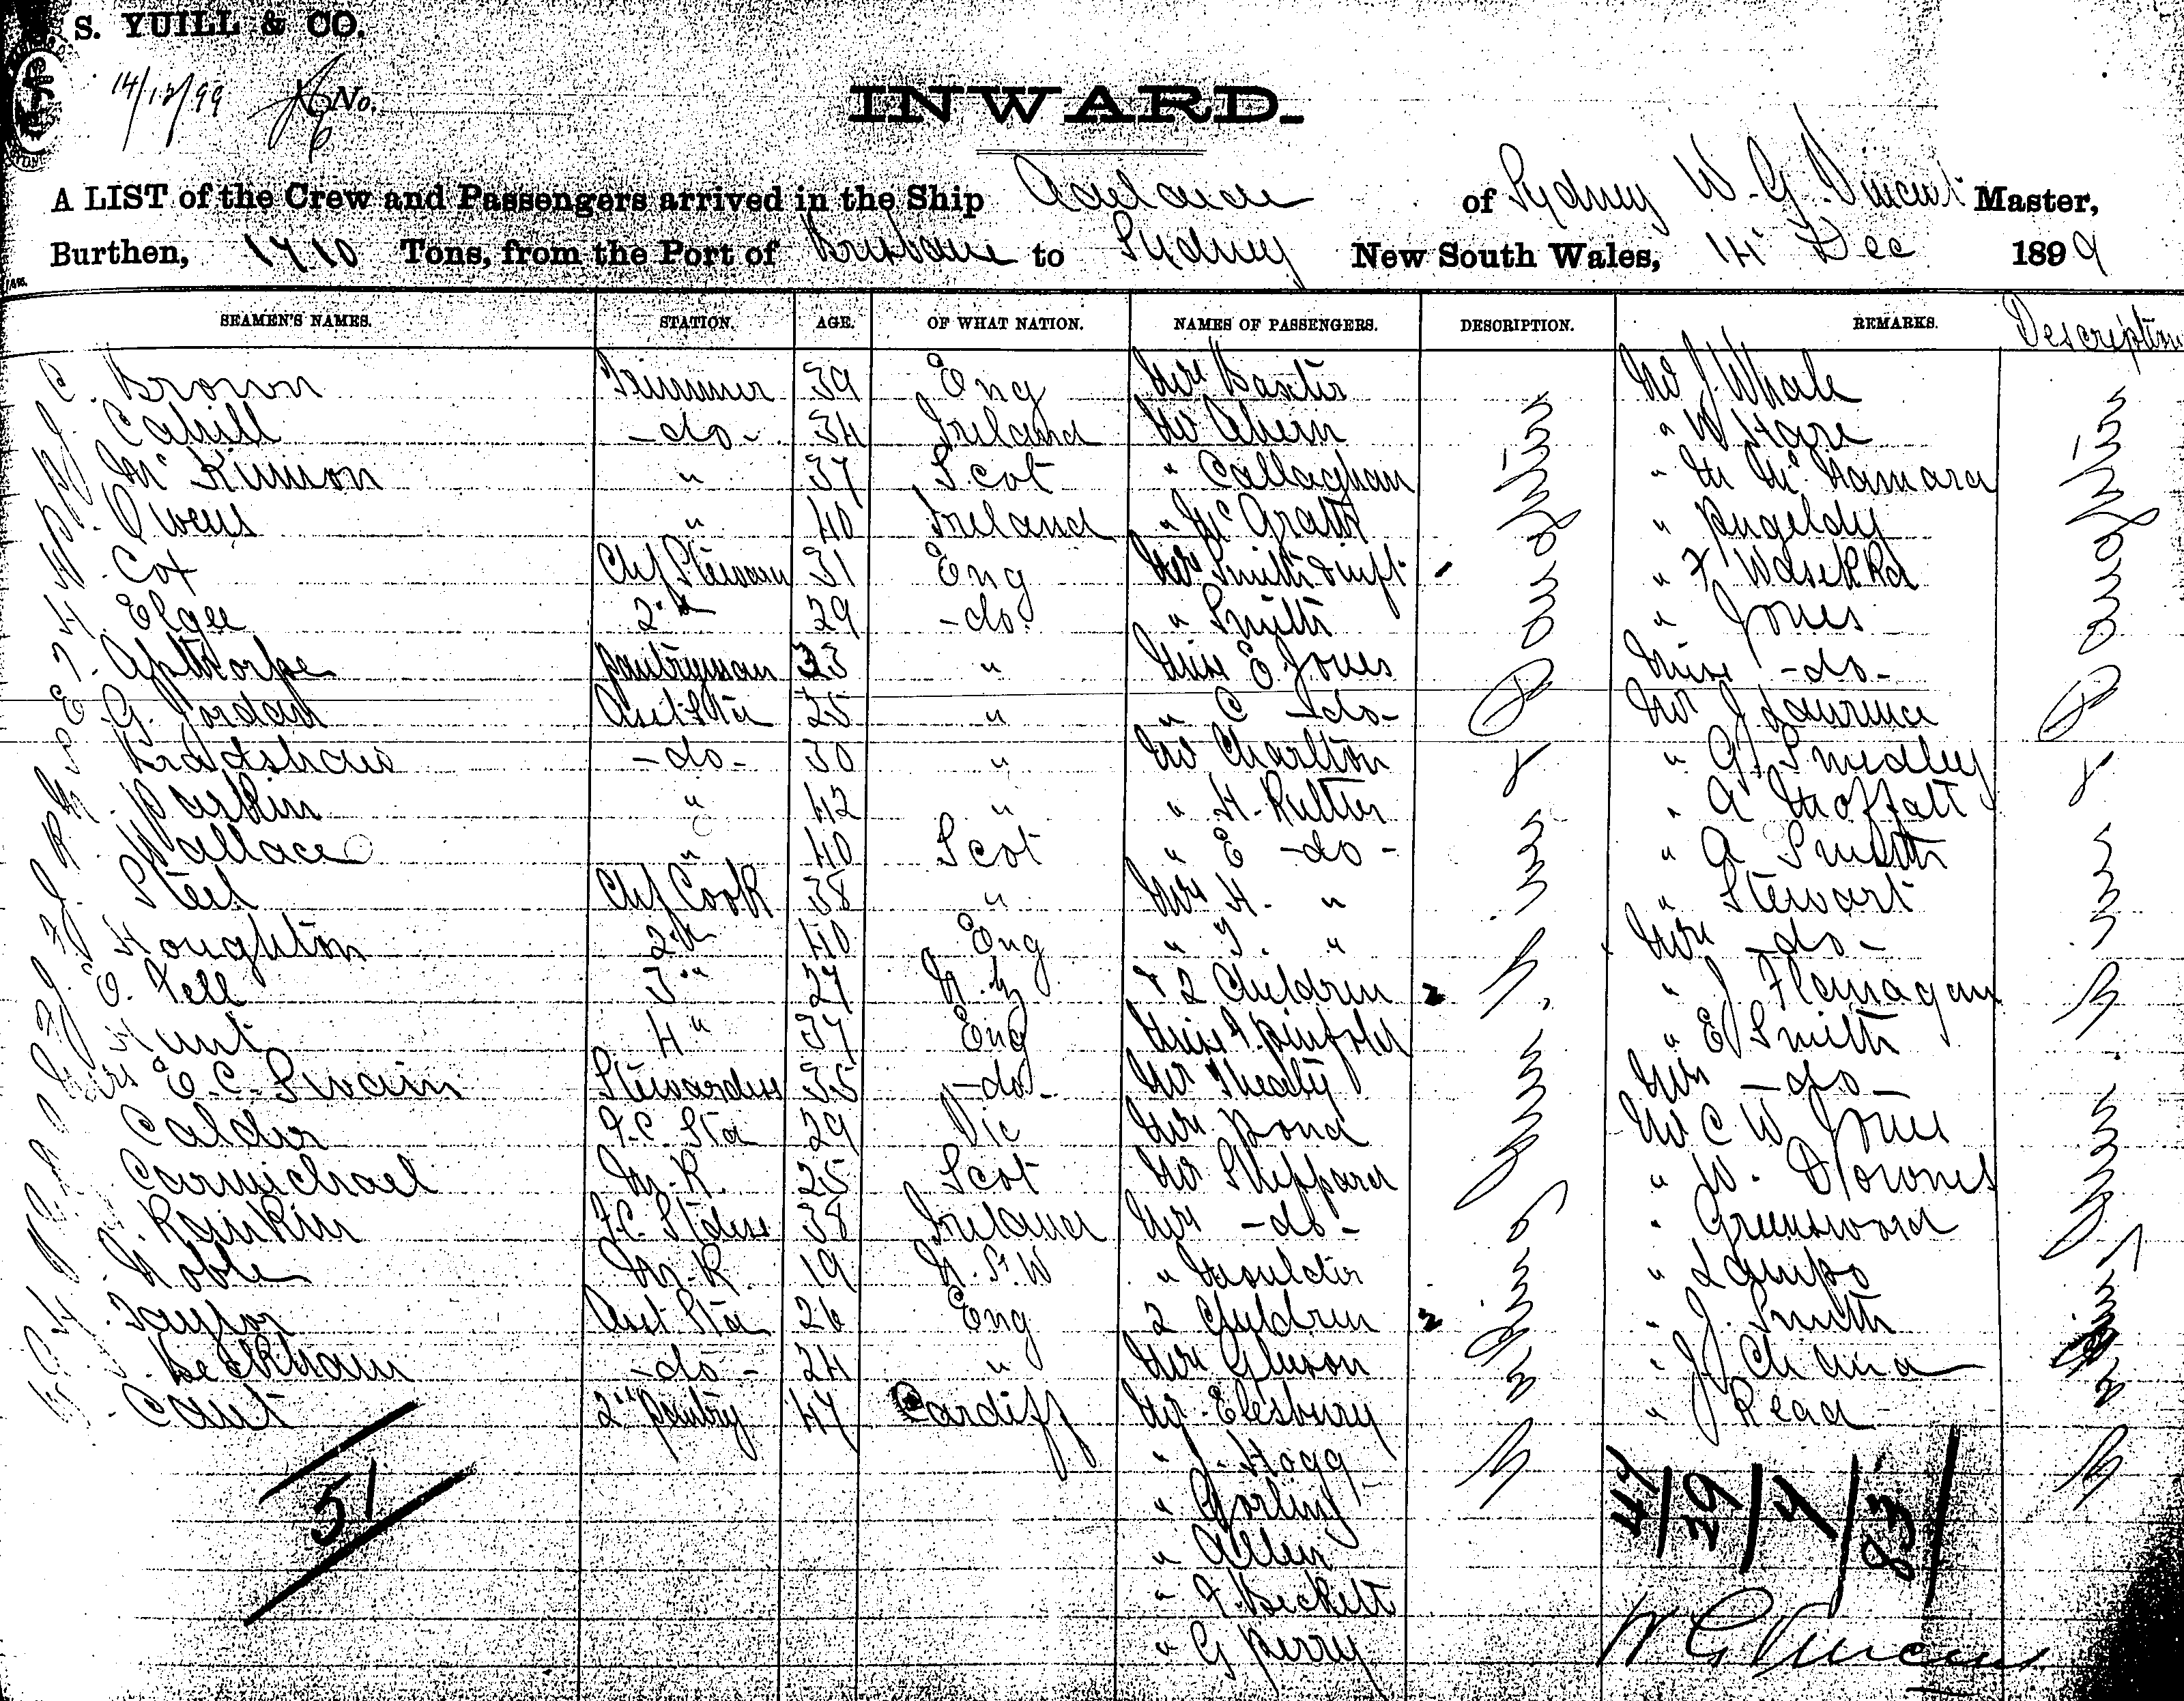 S. YUILL & CO.
14/12/99 No.
INWARD.
A LIST of the Crew and Passengers arrived in the Ship of Sydney W. G. Vincent Master,
Burthen, 1710 Tons, from the Port of Brisbane to Sydney New South Wales, 14 Dec 1899
SEAMEN'S NAMES. STATION. AGE. OF WHAT NATION. NAMES OF PASSENGERS. DESCRIPTION. REMARKS. Description
C. Brown Trimmer 39 Eng Mrs Baxter Mr J Whale
J. Cahill -do- 34 Ireland Mr Ahern " W Hare
McKinnon " 37 Scot " Callaghan " M McNamara
Owens " 40 Ireland " McGrath "
Cox Chf Steward 31 Eng Mrs Smith & inft "
Elgee 2nd 29 -do- " Smith " Jones
Apthorpe pantryman 33 " Miss E. Jones Miss -do-
G. Jordan Asst Std 25 " " C -do- Mr J Lawrence
Bradshaw -do- 30 " Mr Charlton " G Smedley
Parkin " 42 " " H. Rutter " A Moffatt
Wallace " 40 Scot " E -do- " A Smith
Steel Chf Cook 38 " Mrs H. " " Stewart
Houghton 2nd 40 Eng " T. " Mrs -do-
O. Kell 3" 27 N.Z & 2 Children 2 " J Flannagan
Hunt 4" 37 Eng Miss F. Pinfold " E Smith
Mrs E. C. Swain Stewardess 35 -do- Mr Mrs -do-
Calder F.C. Std 29 Vic Mrs Bond Mr C W Jones
Carmichael M. R. 25 Scot Mr Sheppard " W. Downes
Rankin F.C. Stdess 38 Ireland Mrs -do- " Greensword
Noble M. R. 19 N.S.W " Moulder "
Taylor Asst Std 26 Eng 2 Children 2 " J. Smith
Beckham -do- 24 " Mrs Gleeson " J China
Cant 2nd Pantry 47 Cardiff Mr Elesbury " J Read
" J. Hogg
51 " Gorling 47/29/7/83/
" Allen
" F. Beckett
" G Perry W G Vincent